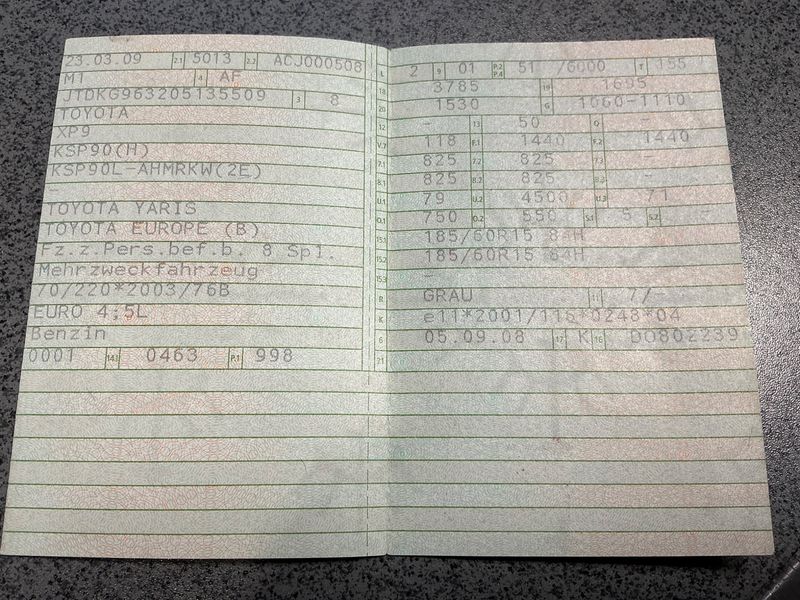 23.03.09 2.1 5013 2.2 ACJ000508
M1 4 AF
JTDKG963205135509 3 8
TOYOTA
XP9
KSP90(H)
KSP90L-AHMRKW(2E)
-
TOYOTA YARIS
TOYOTA EUROPE (B)
Fz.z.Pers.bef.b. 8 Spl.
Mehrzweckfahrzeug
70/220*2003/76B
EURO 4;5L
Benzin
0001 14.1 0463 P.1 998
L 2 9 01 P.2 P.4 51 /6000 T 155
18 3785 19 1695
20 1530 G 1060-1110
12 - 13 50 Q -
V.7 118 F.1 1440 F.2 1440
7.1 825 7.2 825 7.3 -
8.1 825 8.2 825 8.3 -
U.1 79 U.2 4500 U.3 71
O.1 750 O.2 550 S.1 5 S.2 -
15.1 185/60R15 84H
15.2 185/60R15 84H
15.3 -
R GRAU 11 7/-
K e11*2001/116*0248*04
6 05.09.08 17 K 16 DO802239
21